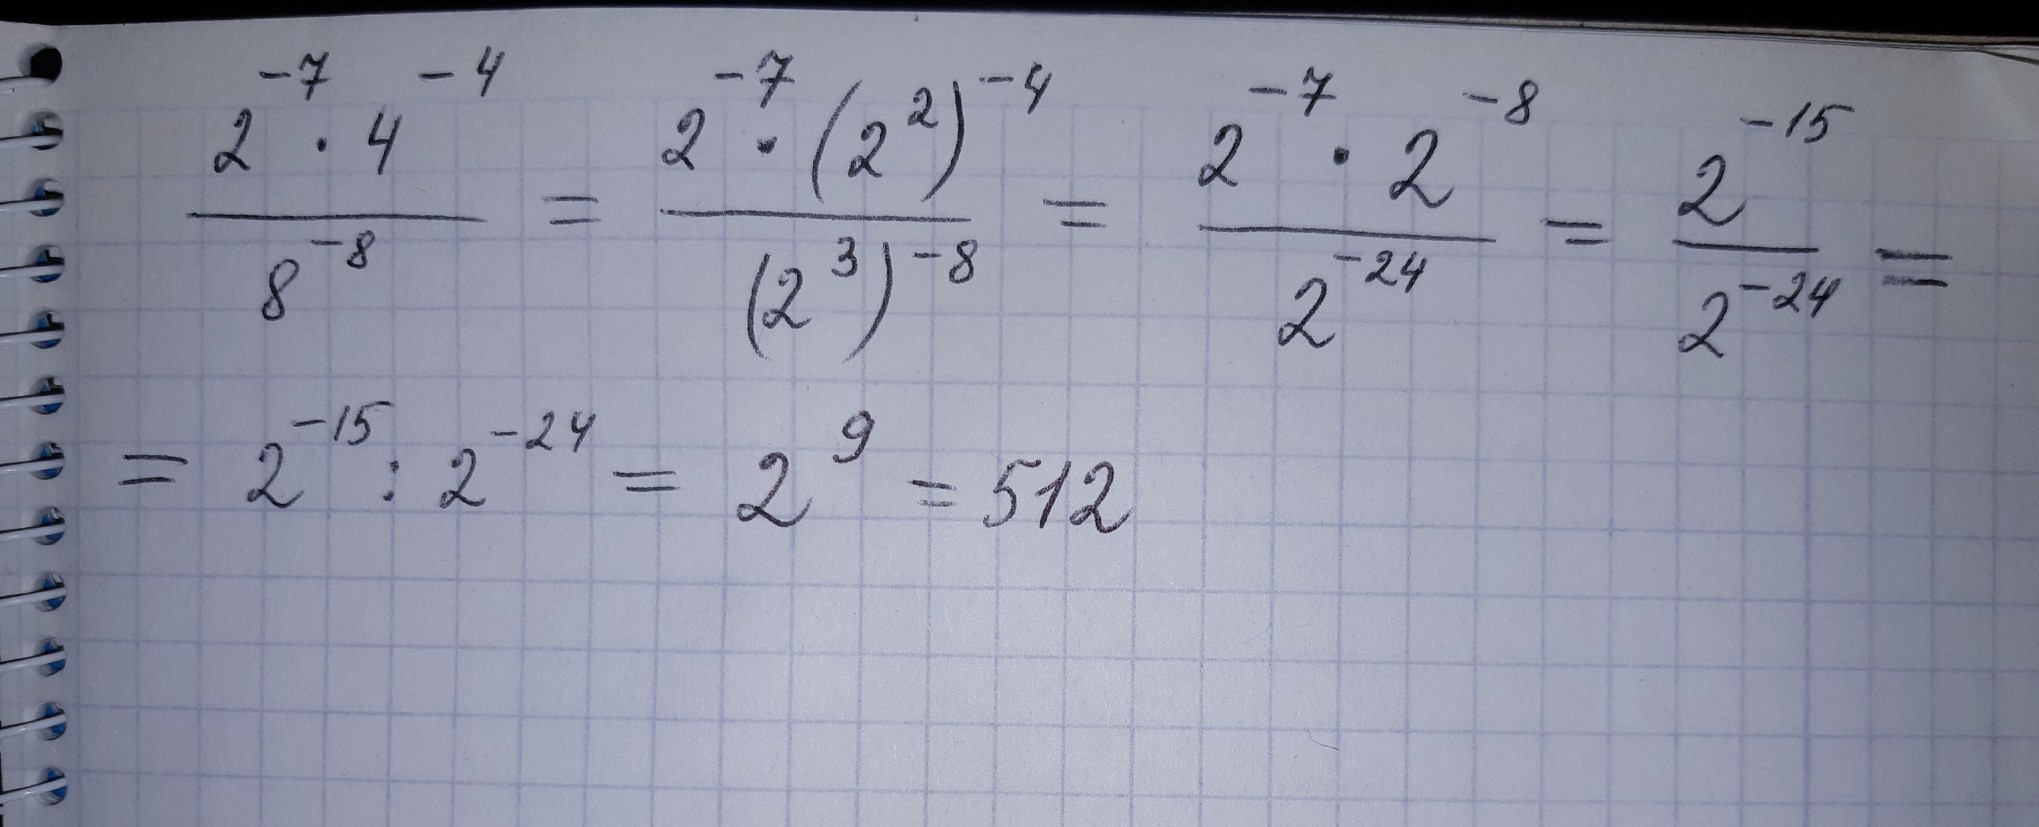 \frac{2^{-7} \cdot 4^{-4}}{8^{-8}} = \frac{2^{-7} \cdot (2^2)^{-4}}{(2^3)^{-8}} = \frac{2^{-7} \cdot 2^{-8}}{2^{-24}} = \frac{2^{-15}}{2^{-24}} =
= 2^{-15} : 2^{-24} = 2^9 = 512